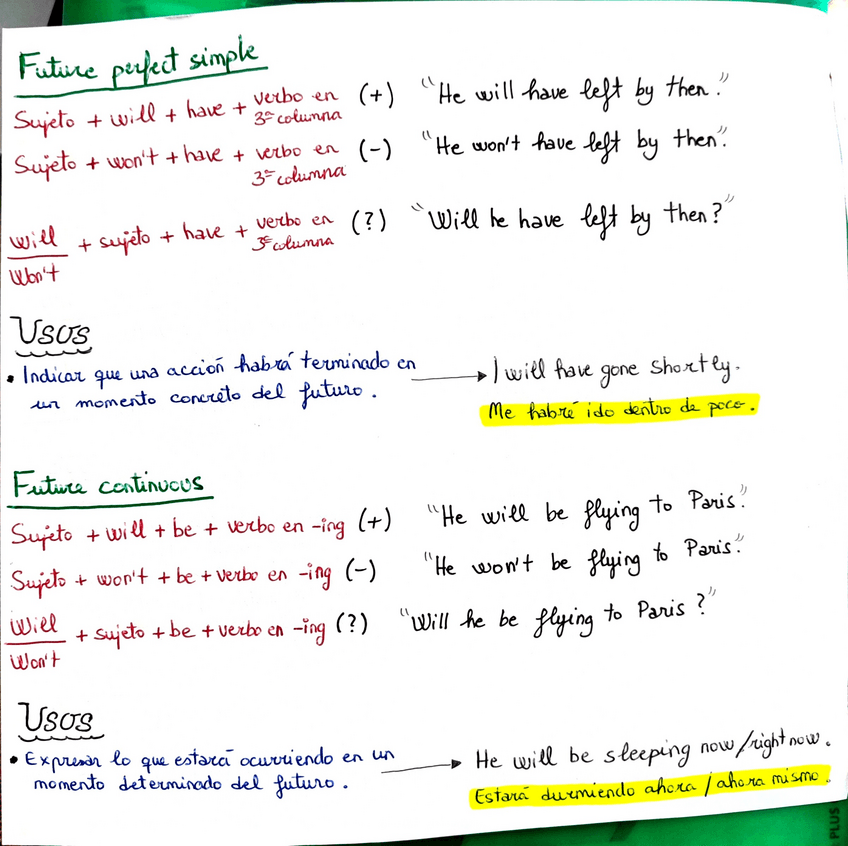 Future perfect simple
Sujeto + will + have + verbo en 3ª columna (+) "He will have left by then."
Sujeto + won't + have + verbo en 3ª columna (-) "He won't have left by then".
Will / Won't + sujeto + have + verbo en 3ª columna (?) "Will he have left by then?"
Usos
• Indicar que una acción habrá terminado en → I will have gone shortly.
un momento concreto del futuro. Me habré ido dentro de poco.
Future continuous
Sujeto + will + be + verbo en -ing (+) "He will be flying to Paris."
Sujeto + won't + be + verbo en -ing (-) "He won't be flying to Paris."
Will / Won't + sujeto + be + verbo en -ing (?) "Will he be flying to Paris?"
Usos
• Expresar lo que estará ocurriendo en un → He will be sleeping now/right now.
momento determinado del futuro. Estará durmiendo ahora / ahora mismo.
PLUS